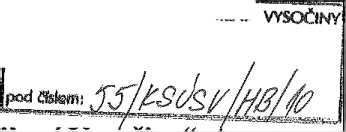 VYSOČINY
pod číslem: 55/KSÚSV/HB/10